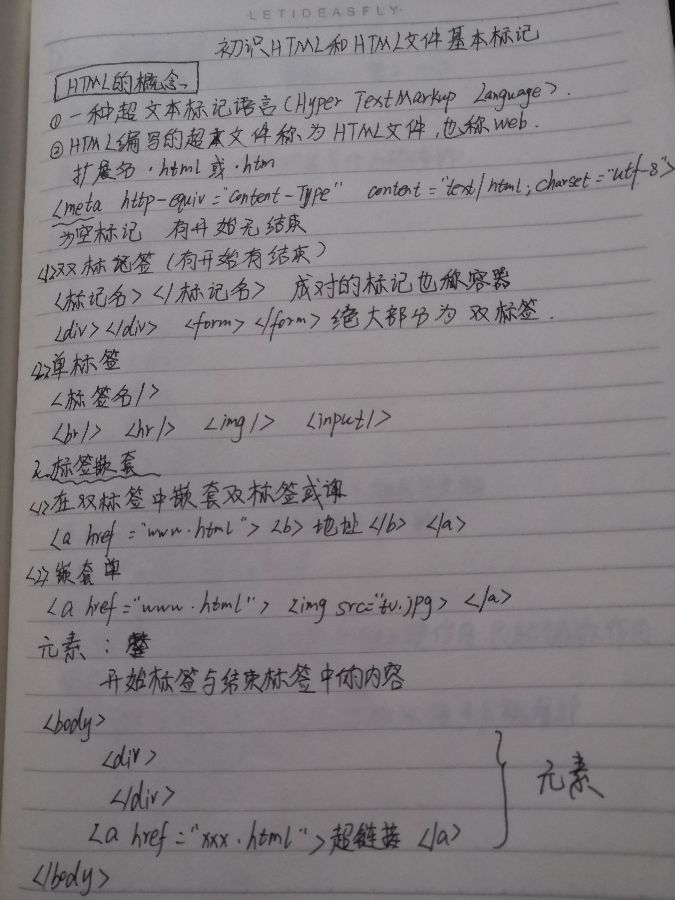 LETIDEASFLY
初识HTML和HTML文件基本标记
HTML的概念、
① 一种超文本标记语言(Hyper TextMarkup Language).
② HTML编写的超文件称为HTML文件,也称web.
扩展名 .html 或 .htm
<meta http-equiv="Content-Type" content="text/html; charset="utf-8">
为空标记 有开始无结束
<1>双标签(有开始有结束)
<标记名></标记名> 成对的标记也称容器
<div></div> <form></form> 绝大部分为双标签.
<2>单标签
<标签名/>
<br/> <hr/> <img/> <input/>
2.标签嵌套
<1>在双标签中嵌套双标签或单
<a href="www.html"> <b> 地址</b> </a>
<2>嵌套单
<a href="www.html"> <img src="tu.jpg> </a>
元素:
开始标签与结束标签中的内容
<body>
<div>
</div>
元素
<a href="xxx.html">超链接 </a>
</body>